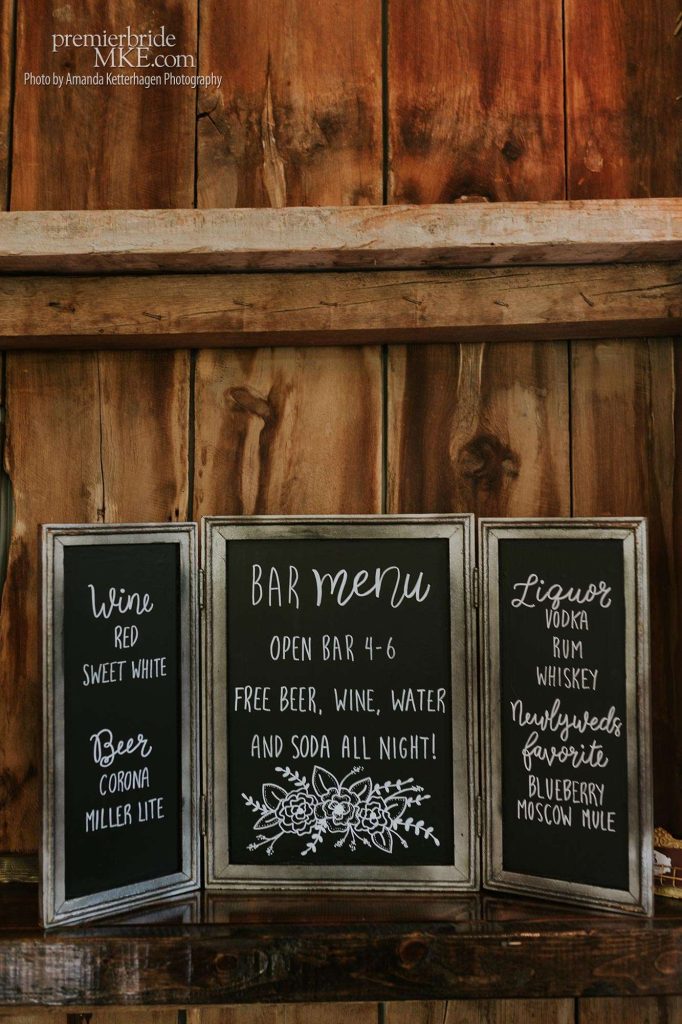 premierbride
MKE.com
Photo by Amanda Ketterhagen Photography
Wine
RED
SWEET WHITE
Beer
CORONA
MILLER LITE
BAR menu
OPEN BAR 4-6
FREE BEER, WINE, WATER
AND SODA ALL NIGHT!
Liquor
VODKA
RUM
WHISKEY
Newlyweds
favorite
BLUEBERRY
MOSCOW MULE